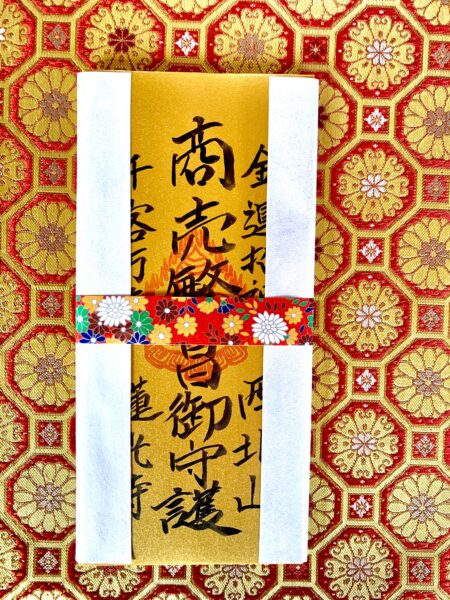 金運招福 山
商売繁昌御守護
千客万 蓮光寺